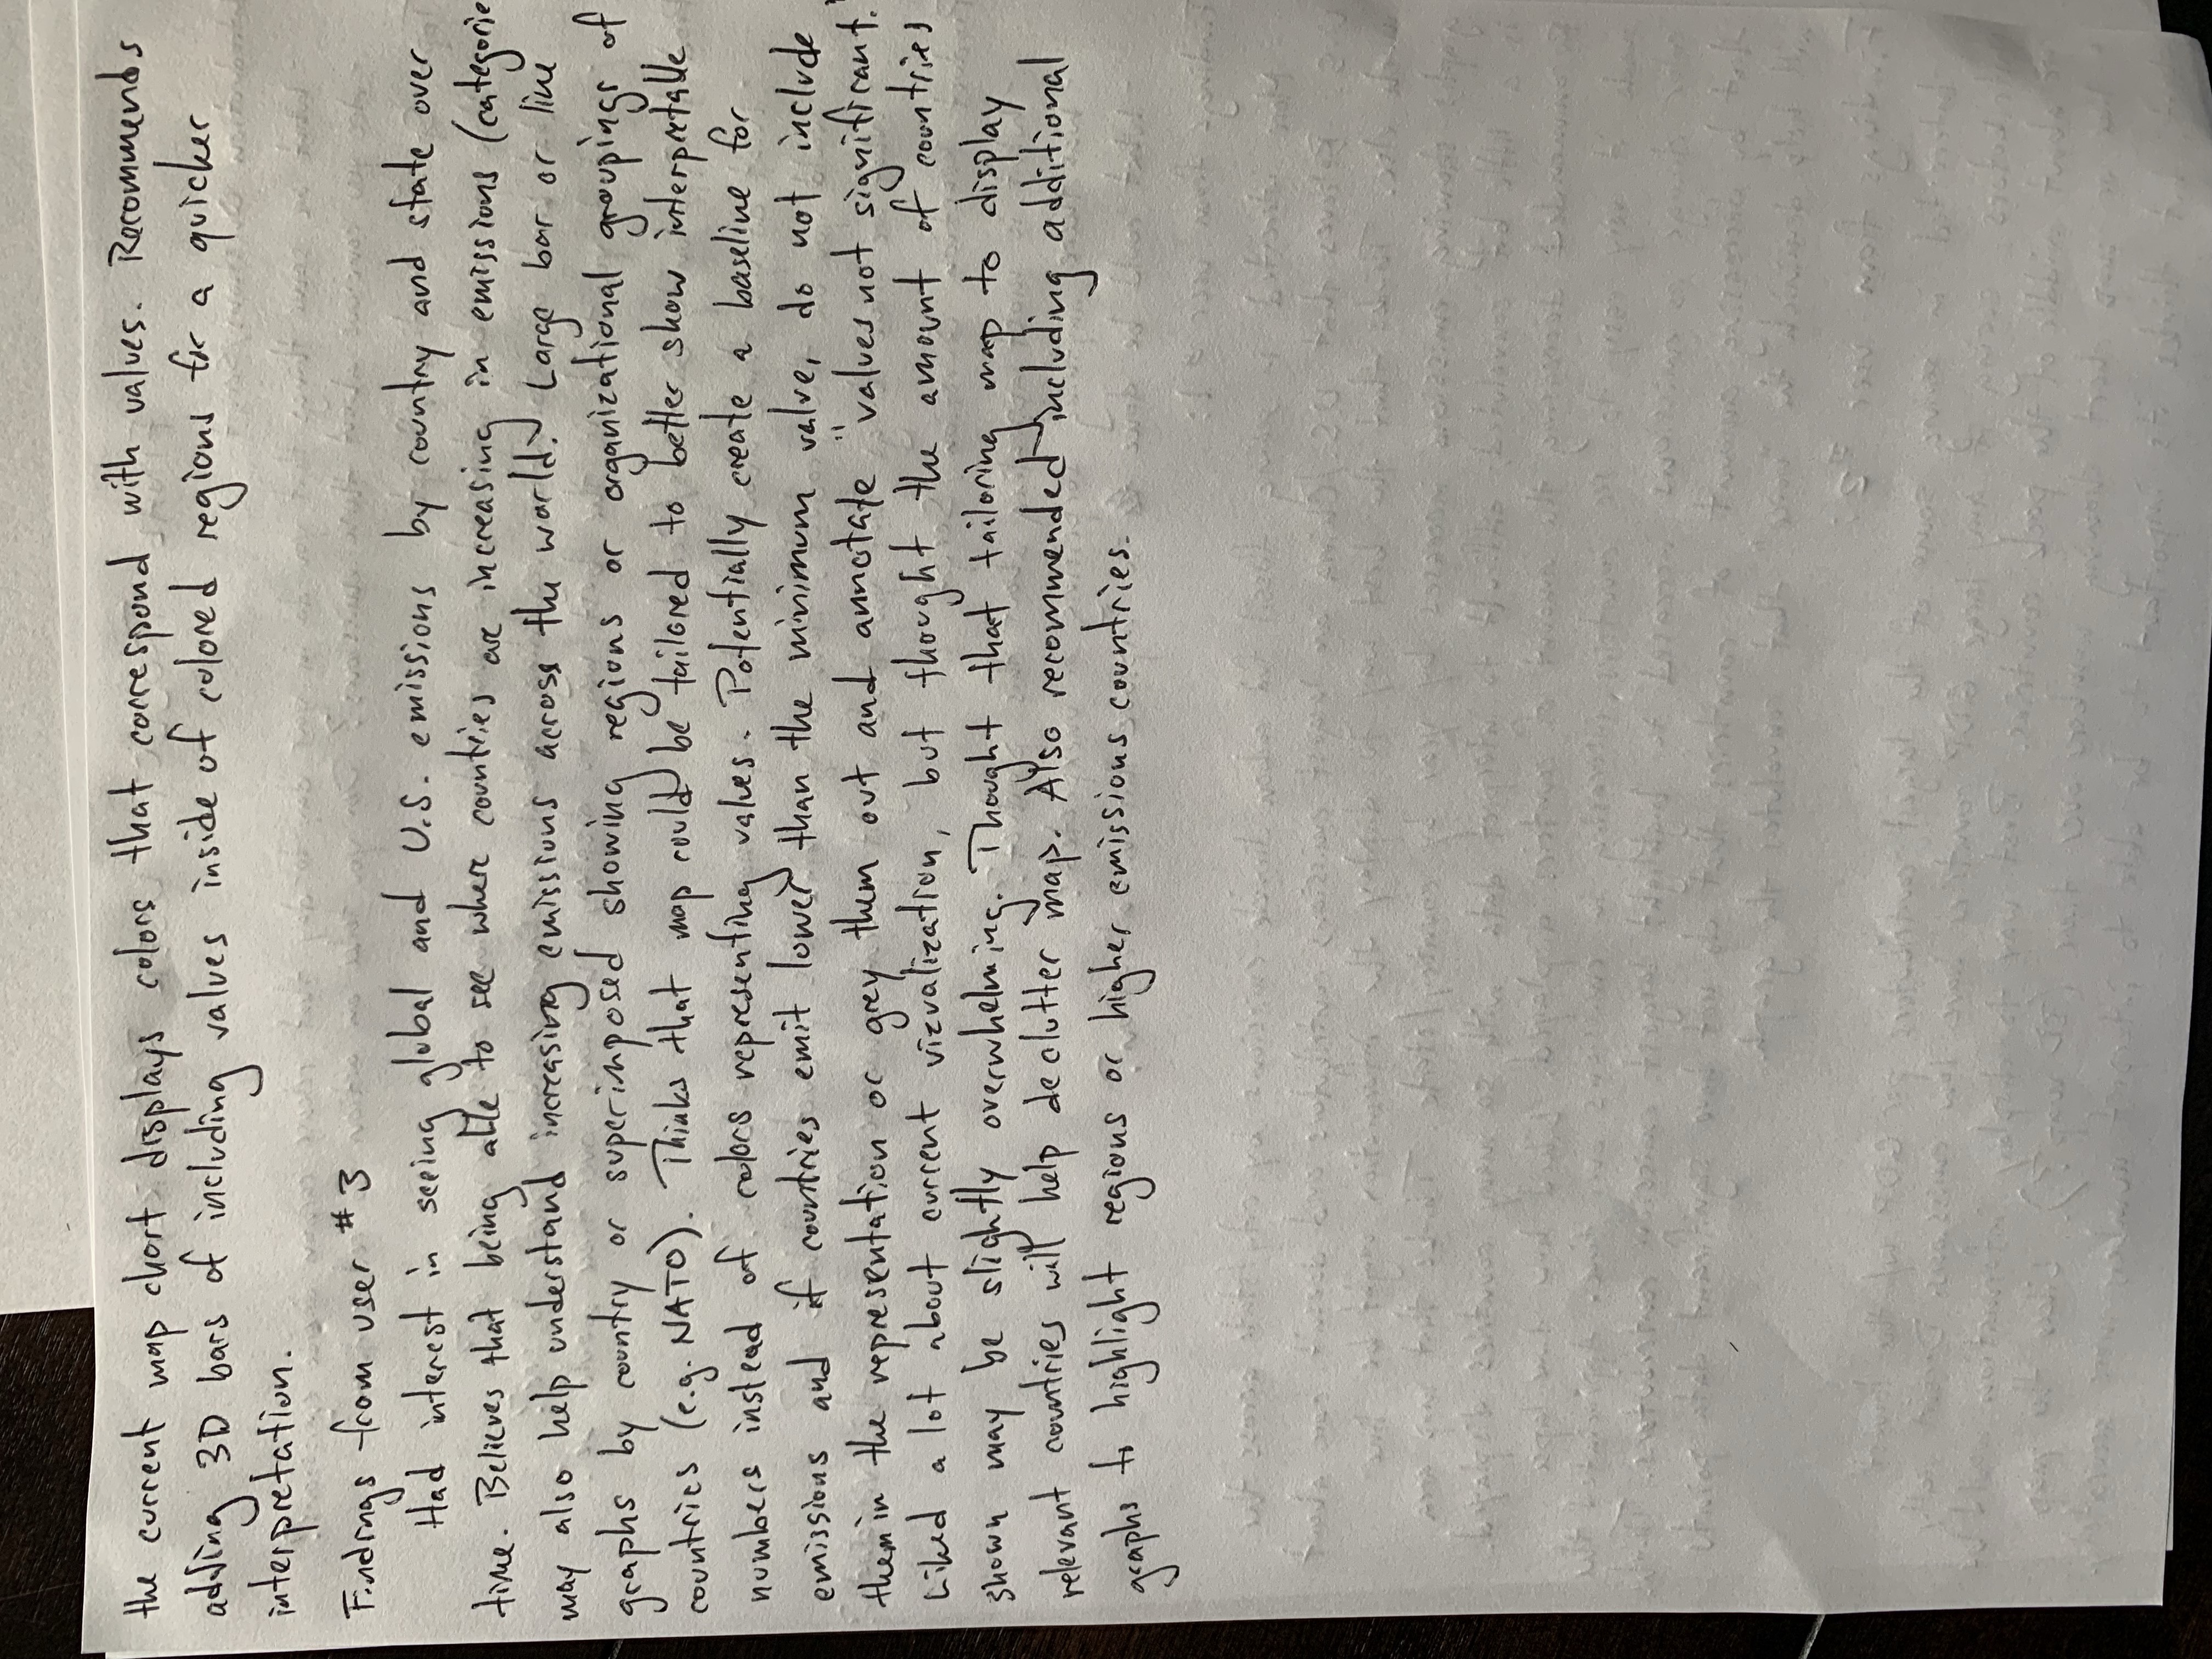 the current map chart displays colors that correspond with values. Recommends
adding 3D bars of including values inside of colored regions for a quicker
interpretation.
Findings from user #3
Had interest in seeing global and U.S. emissions by country and state over
time. Believes that being able to see where countries are increasing in emissions (categorie
may also help understand increasing emissions across the world. Large bar or line
graphs by country or superimposed showing regions or organizational groupings of
countries (e.g. NATO). Thinks that map could be tailored to better show interpretable
numbers instead of colors representing values. Potentially create a baseline for
emissions and if countries emit lower than the minimum value, do not include
them in the representation or grey them out and annotate "values not significant."
Liked a lot about current vizualization, but thought the amount of countries
shown may be slightly overwhelming. Thought that tailoring map to display
relevant countries will help declutter map. Also recommended including additional
graphs to highlight regions or higher emissions countries.